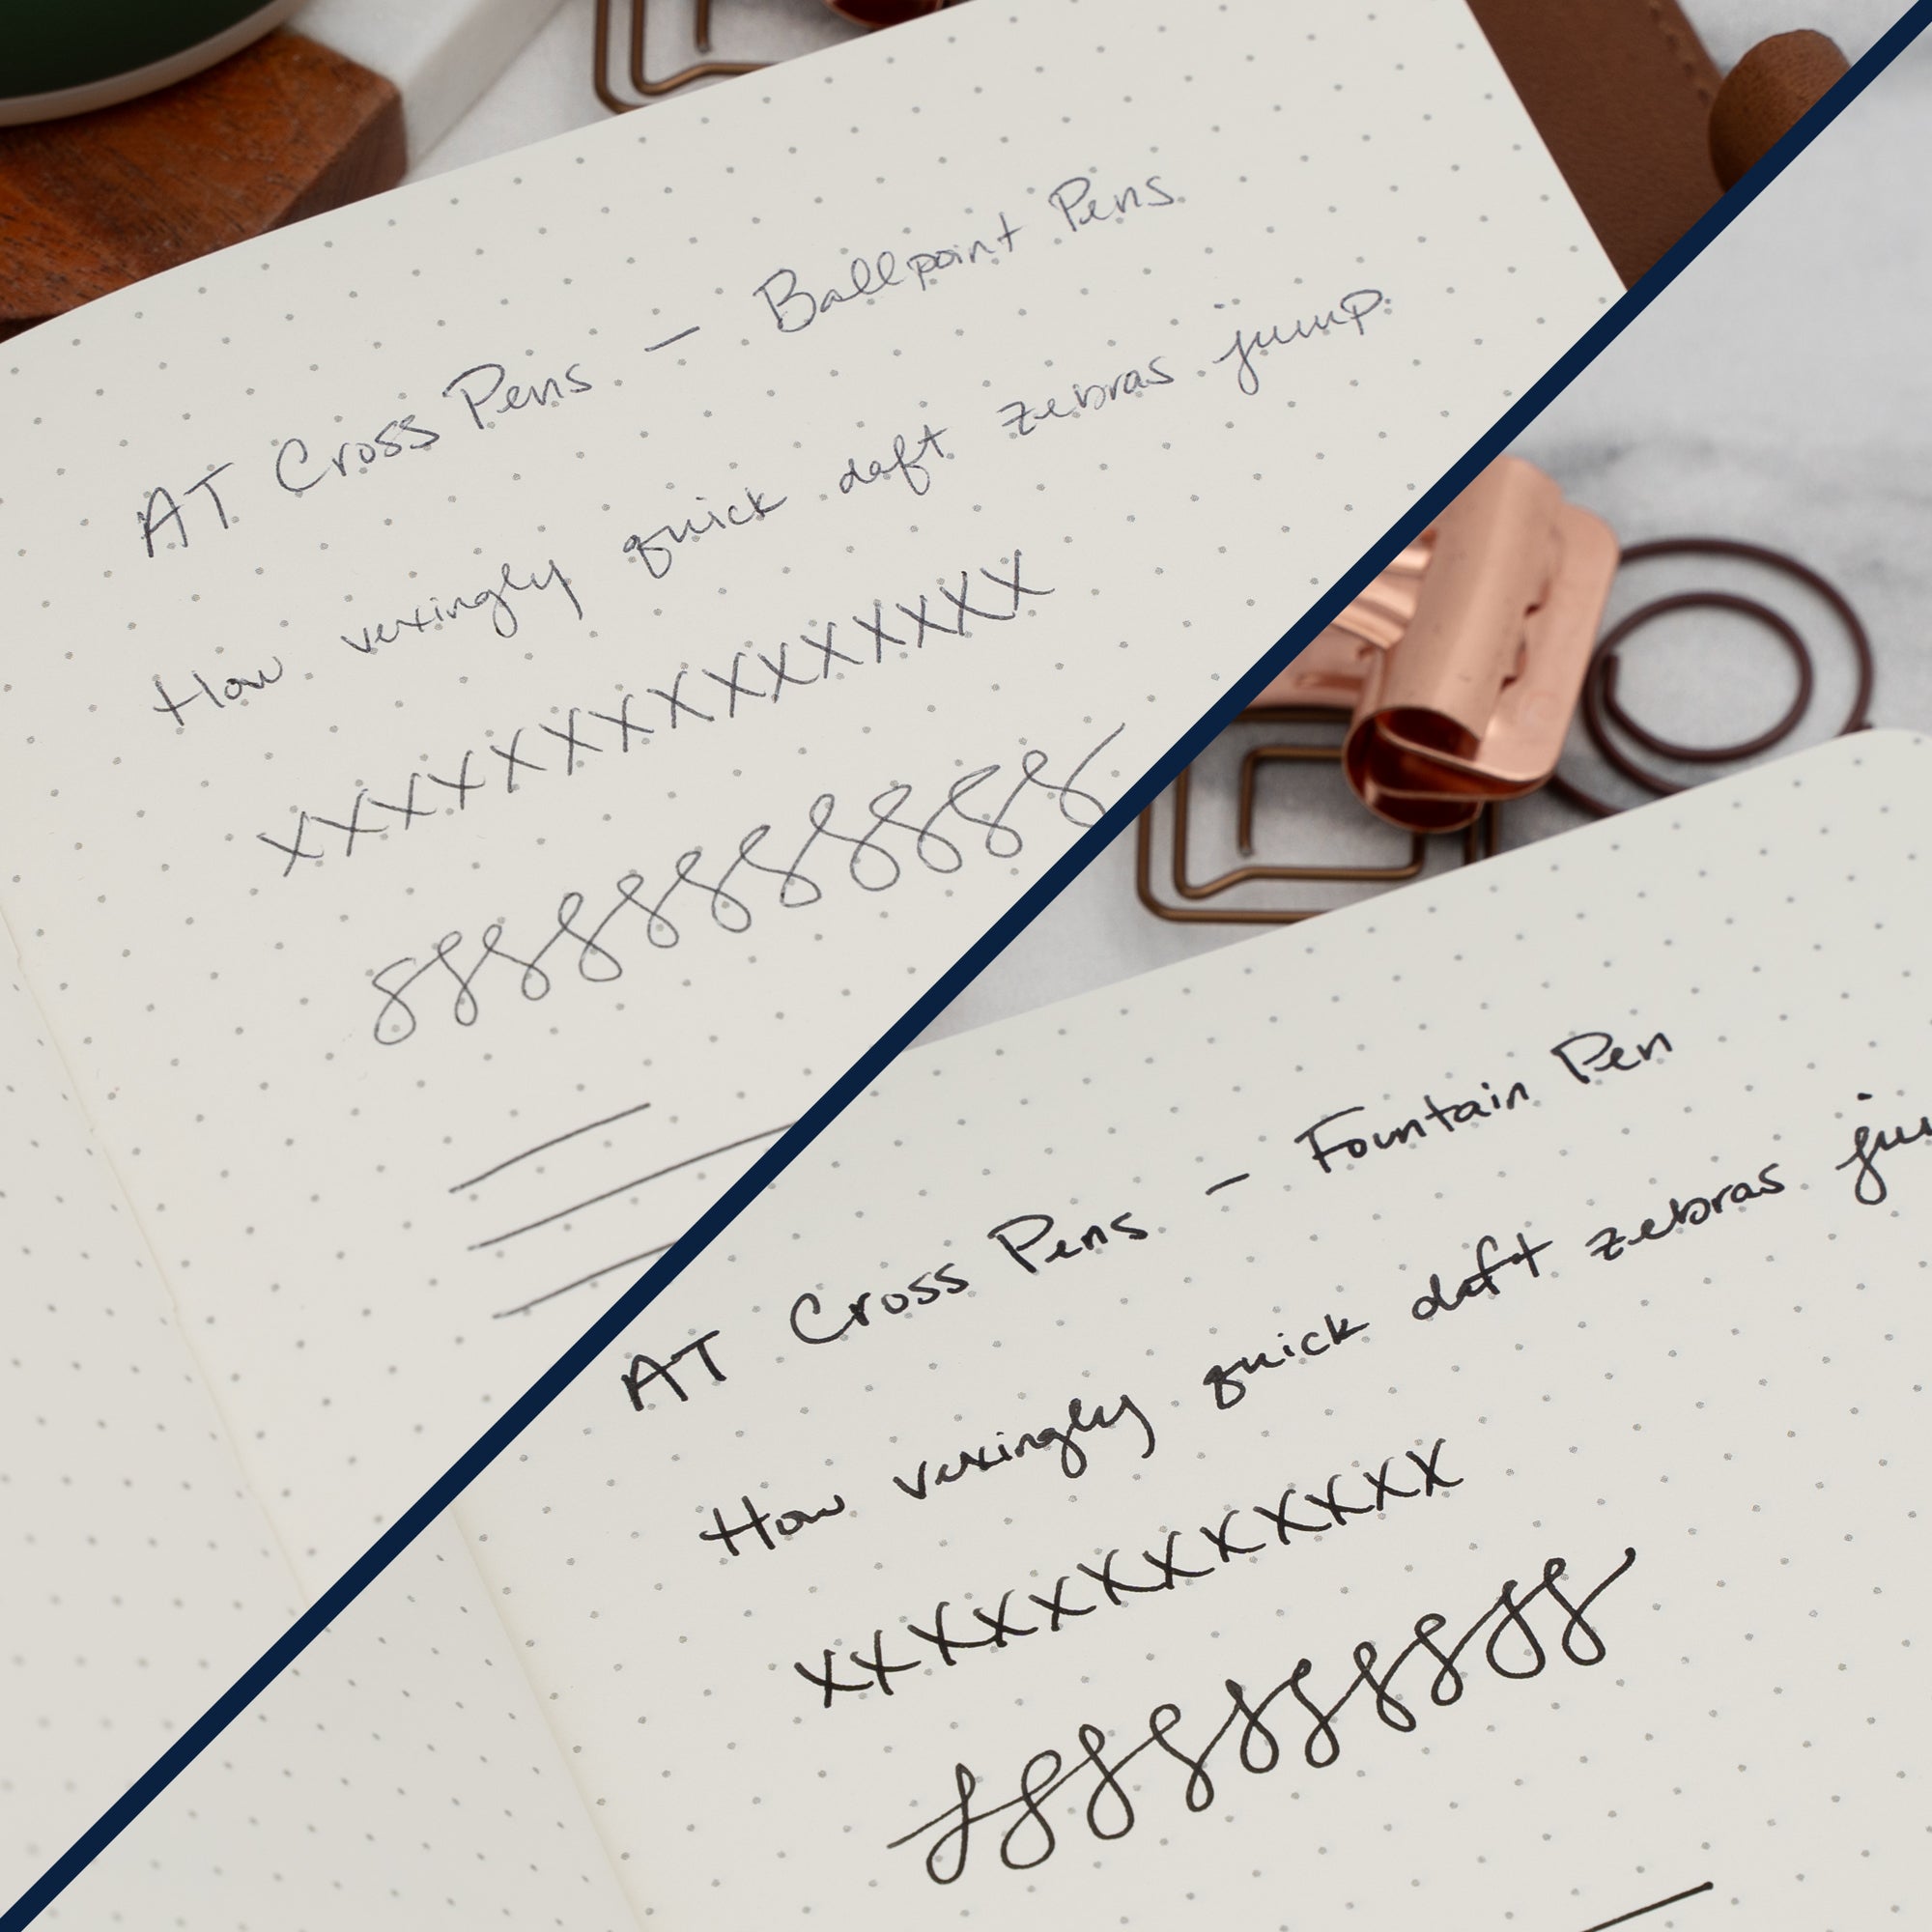 AT Cross Pens — Ballpoint Pens
How vexingly quick daft zebras jump.
XXXXXXXXXXXXXX
AT Cross Pens — Fountain Pen
How vexingly quick daft zebras
XXXXXXXXXXXX